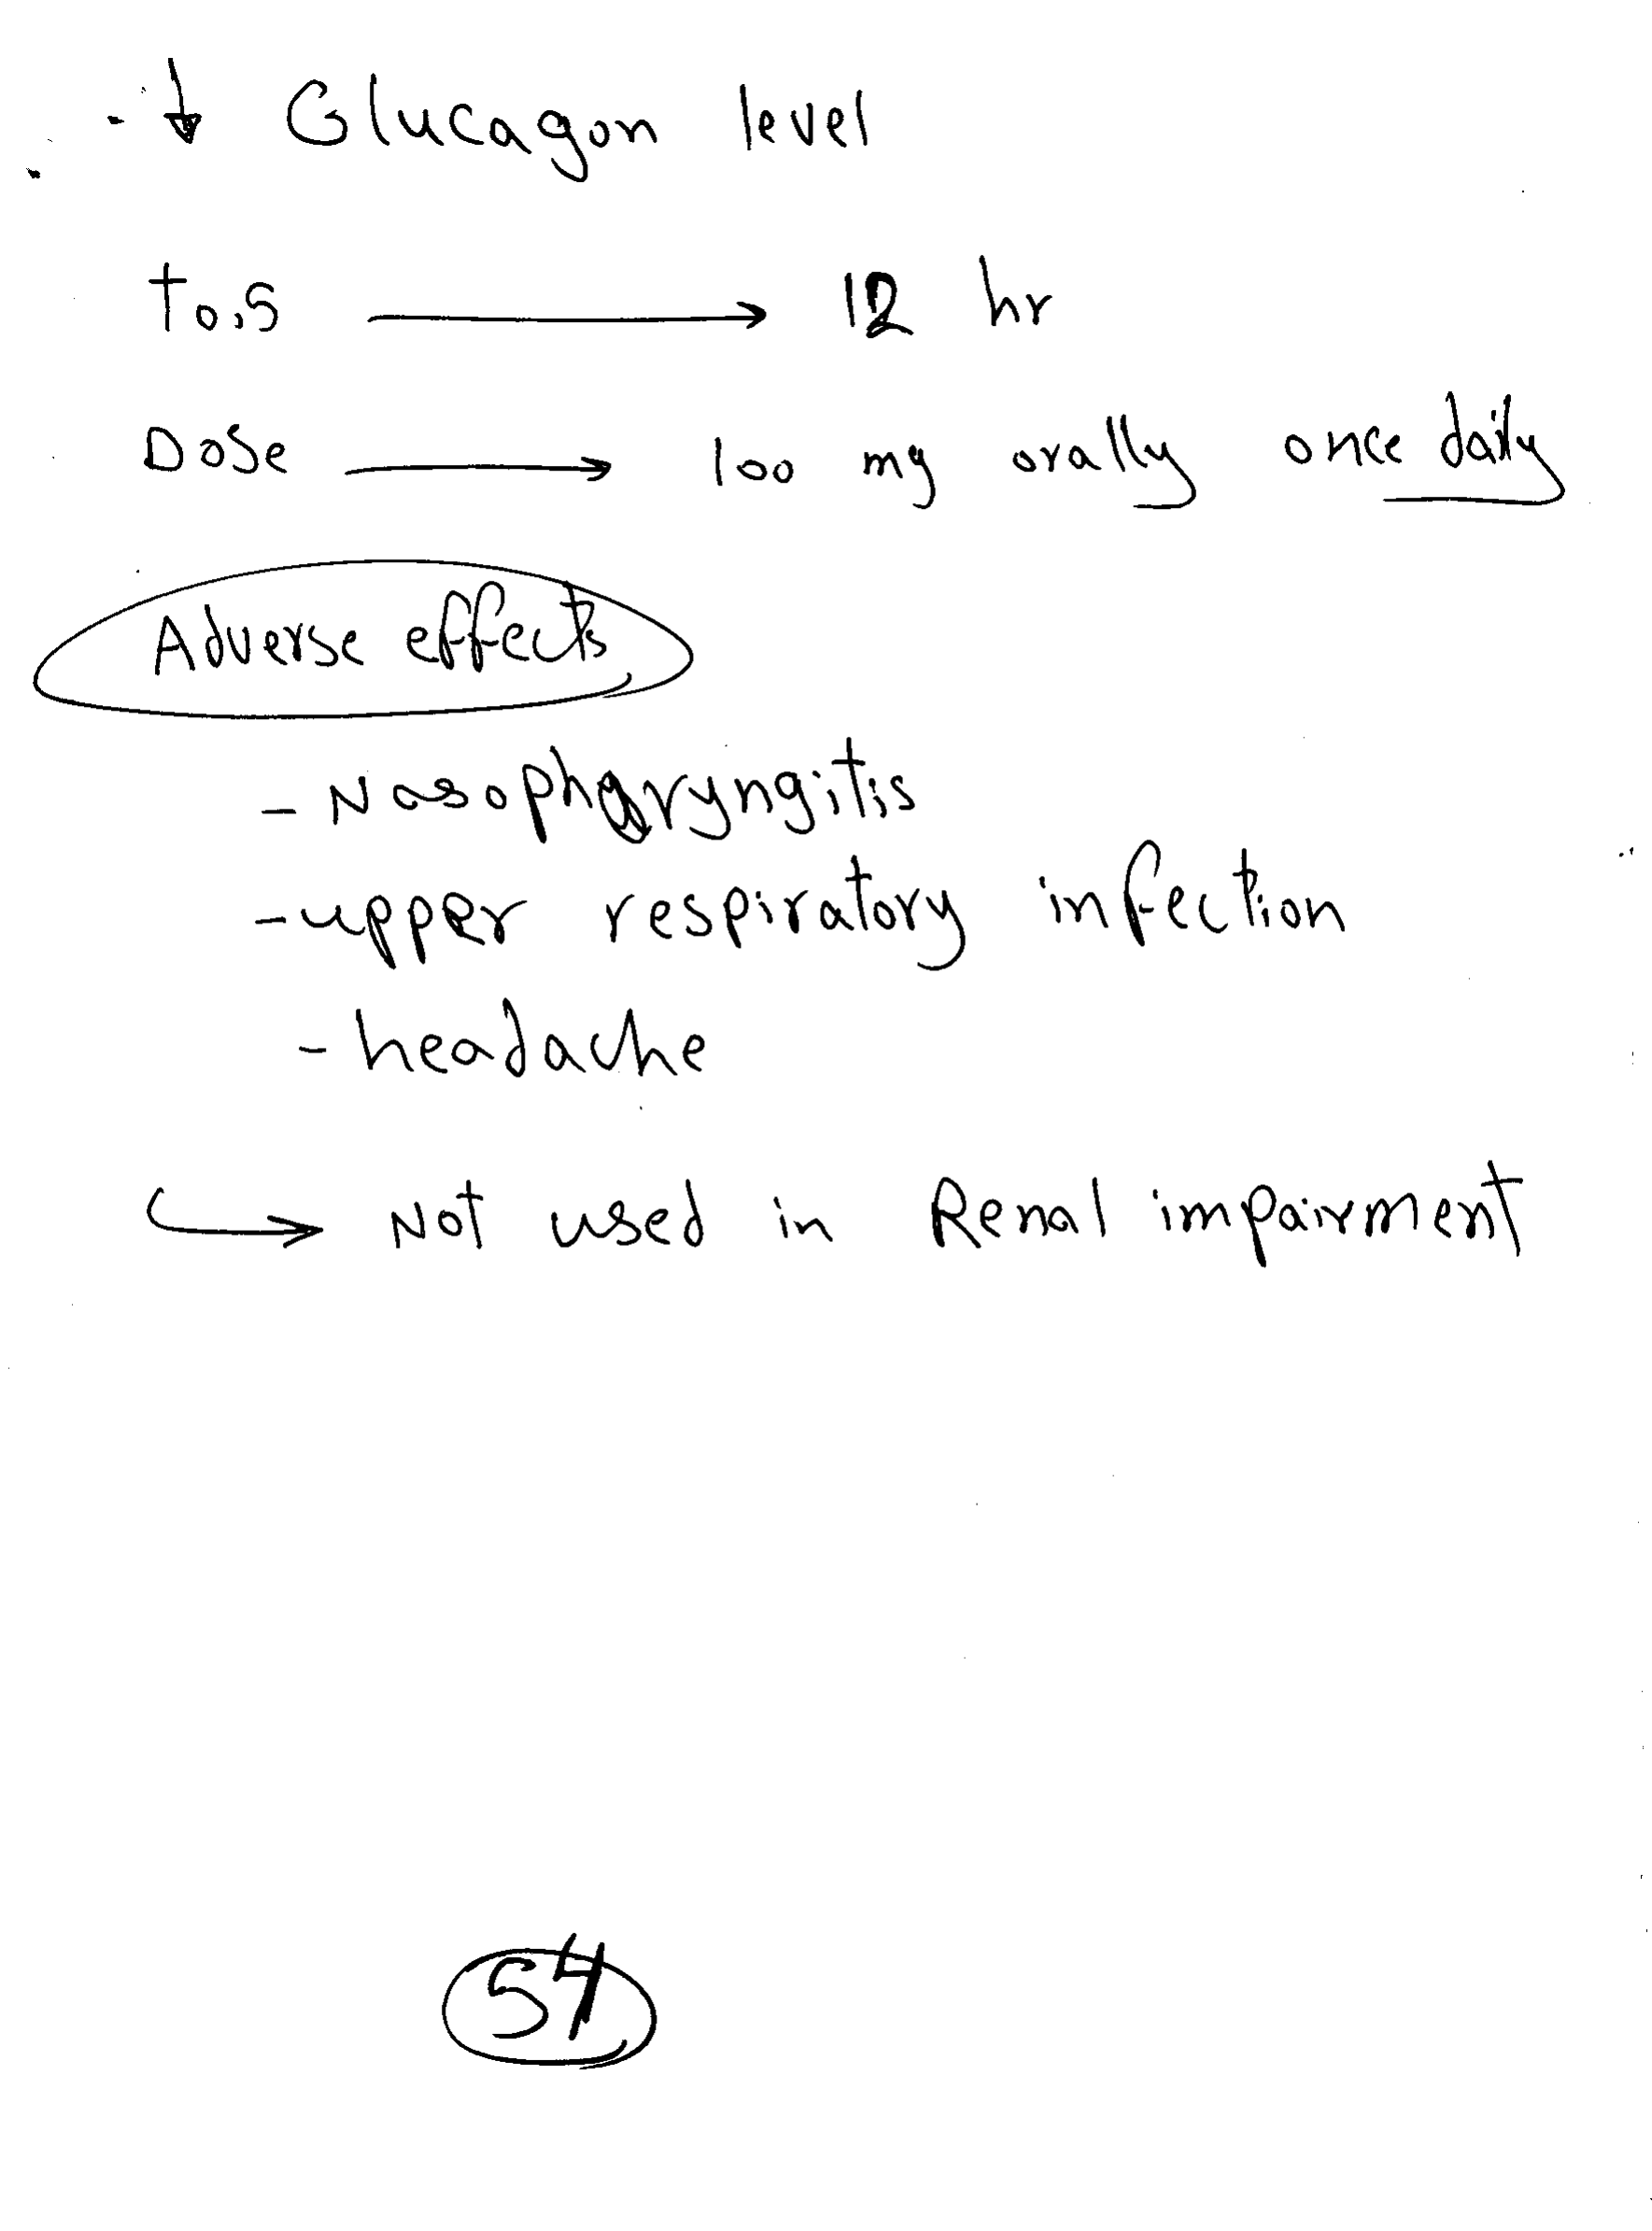 - ↓ Glucagon level
t0.5 → 12 hr
Dose → 100 mg orally once daily
Adverse effects
- Nasopharyngitis
- upper respiratory infection
- headache
↪ Not used in Renal impairment
54